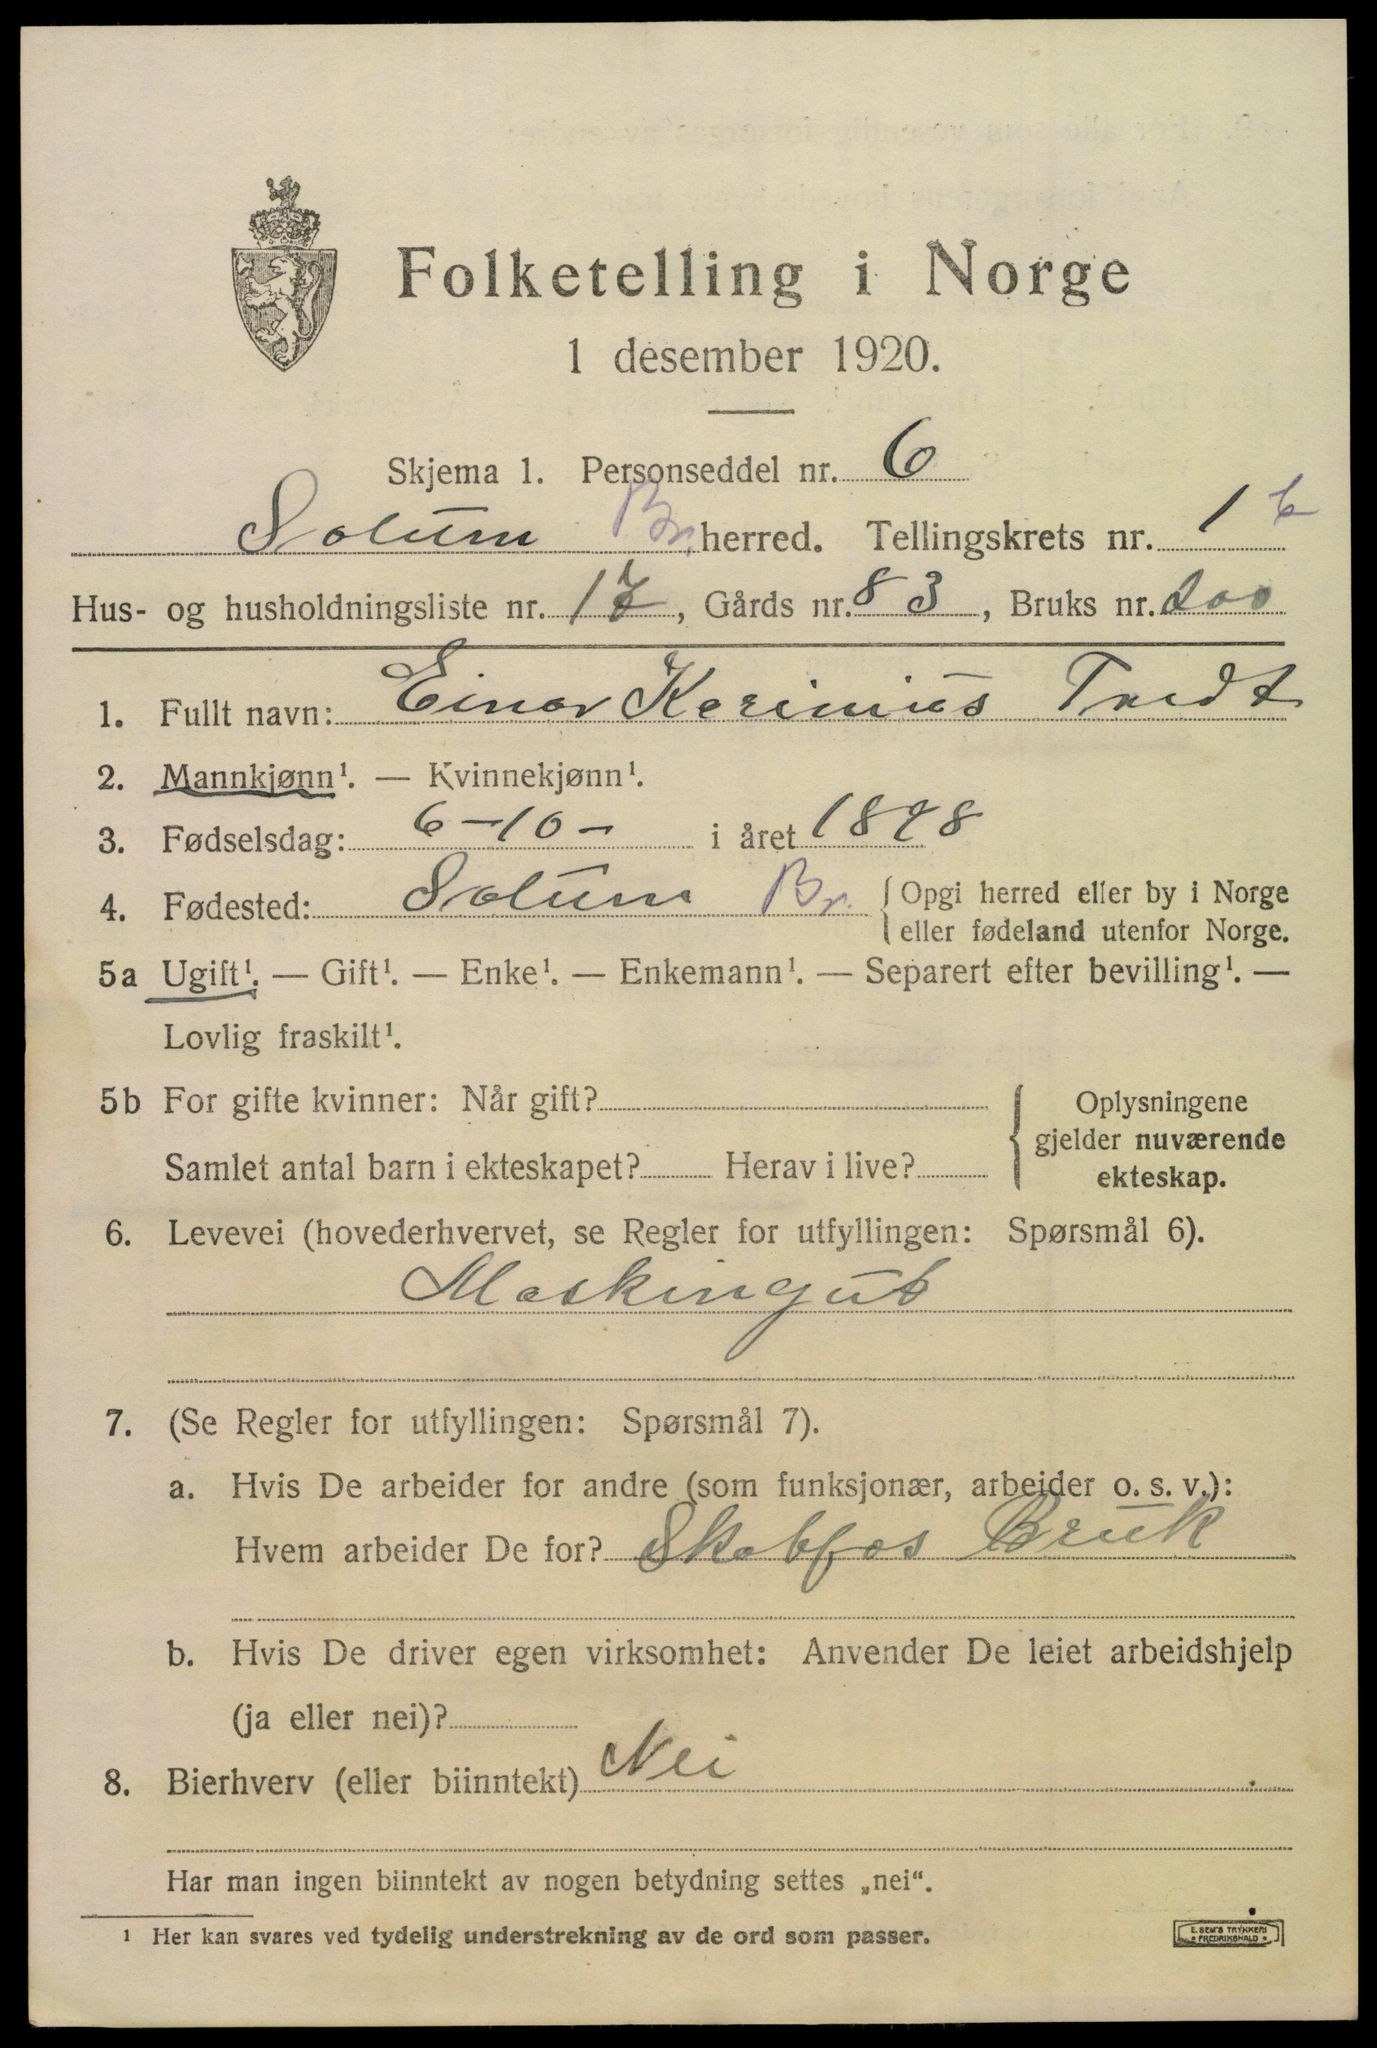 Folketelling i Norge
1 desember 1920.
Skjema 1. Personseddel nr. 6
Solum Br. herred. Tellingskrets nr. 1 6
Hus- og husholdningsliste nr. 17, Gårds nr. 83, Bruks nr. 200
1. Fullt navn: Einar Kerinius
2. Mannkjønn¹. — Kvinnekjønn¹.
3. Fødselsdag: 6-10- i året 1898
4. Fødested: Solum Br. { Opgi herred eller by i Norge
eller fødeland utenfor Norge.
5a Ugift¹. — Gift¹. — Enke¹. — Enkemann¹. — Separert efter bevilling¹. —
Lovlig fraskilt¹.
5b For gifte kvinner: Når gift? { Oplysningene
gjelder nuværende
Samlet antal barn i ekteskapet? Herav i live? ekteskap.
6. Levevei (hovederhvervet, se Regler for utfyllingen: Spørsmål 6).
Maskingut
7. (Se Regler for utfyllingen: Spørsmål 7).
a. Hvis De arbeider for andre (som funksjonær, arbeider o. s. v.):
Hvem arbeider De for? Skotfos Bruk
b. Hvis De driver egen virksomhet: Anvender De leiet arbeidshjelp
(ja eller nei)?
8. Bierhverv (eller biinntekt) Nei
Har man ingen biinntekt av nogen betydning settes „nei“.
¹ Her kan svares ved tydelig understrekning av de ord som passer.
E. SEM'S TRYKKERI
FREDRIKSHALD